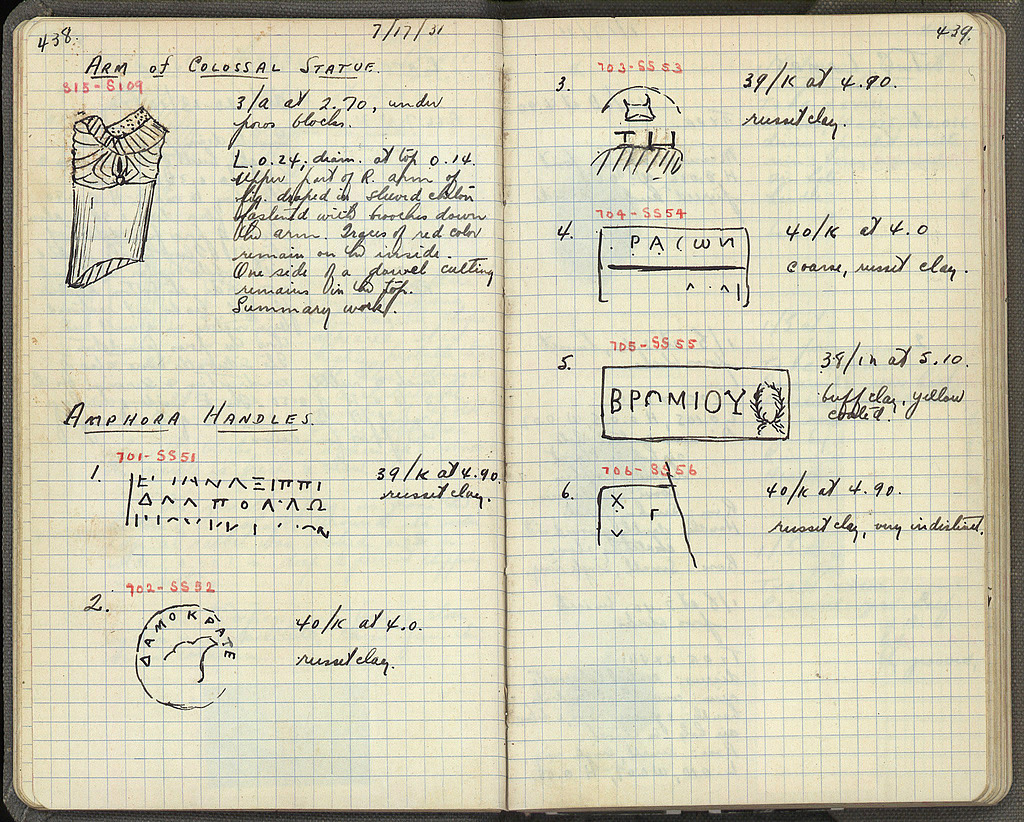 438
7/17/31
ARM of COLOSSAL STATUE.
815-S109
3/A at 2.70, under
poros blocks.
L. 0.24; diam. at top 0.14.
Upper part of R. arm of
fig. draped in sleeved chiton
fastened with brooches down
the arm. Traces of red color
remain on the inside.
One side of a dowel cutting
remains in the top.
Summary work.
AMPHORA HANDLES.
701-SS51
1.
39/K at 4.90.
russet clay.
702-SS52
2.
ΔΑΜΟΚΡΑΤΕ
40/K at 4.0.
russet clay.
439.
703-SS53
3.
39/K at 4.90.
russet clay.
704-SS54
4.
40/K at 4.0
coarse, russet clay.
705-SS55
5.
ΒΡΩΜΙΟΥ
39/ΙΠ at 5.10.
buff clay, yellow
coated.
706-SS56
6.
Χ
Γ
40/K at 4.90.
russet clay, very indistinct.